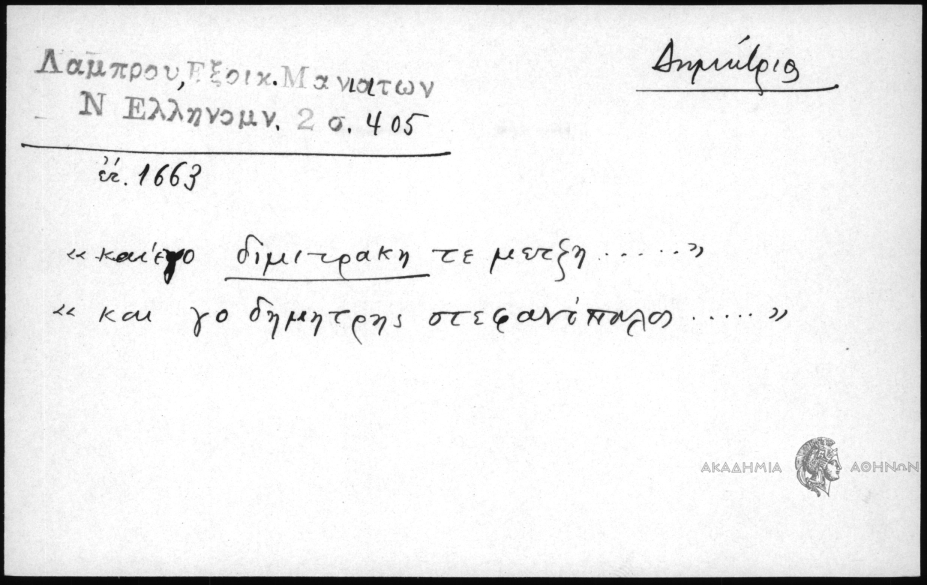 Δημήτριος
Λαμπρου, Εξοικ. Μανιατων
Ν Ελληνομν. 2 σ. 405
ἔτ. 1663
«και εγο διμιτρακη τε μετξη ......»
«και γο δημητρης στεφανόπολος .....»
ΑΚΑΔΗΜΙΑ ΑΘΗΝΩΝ